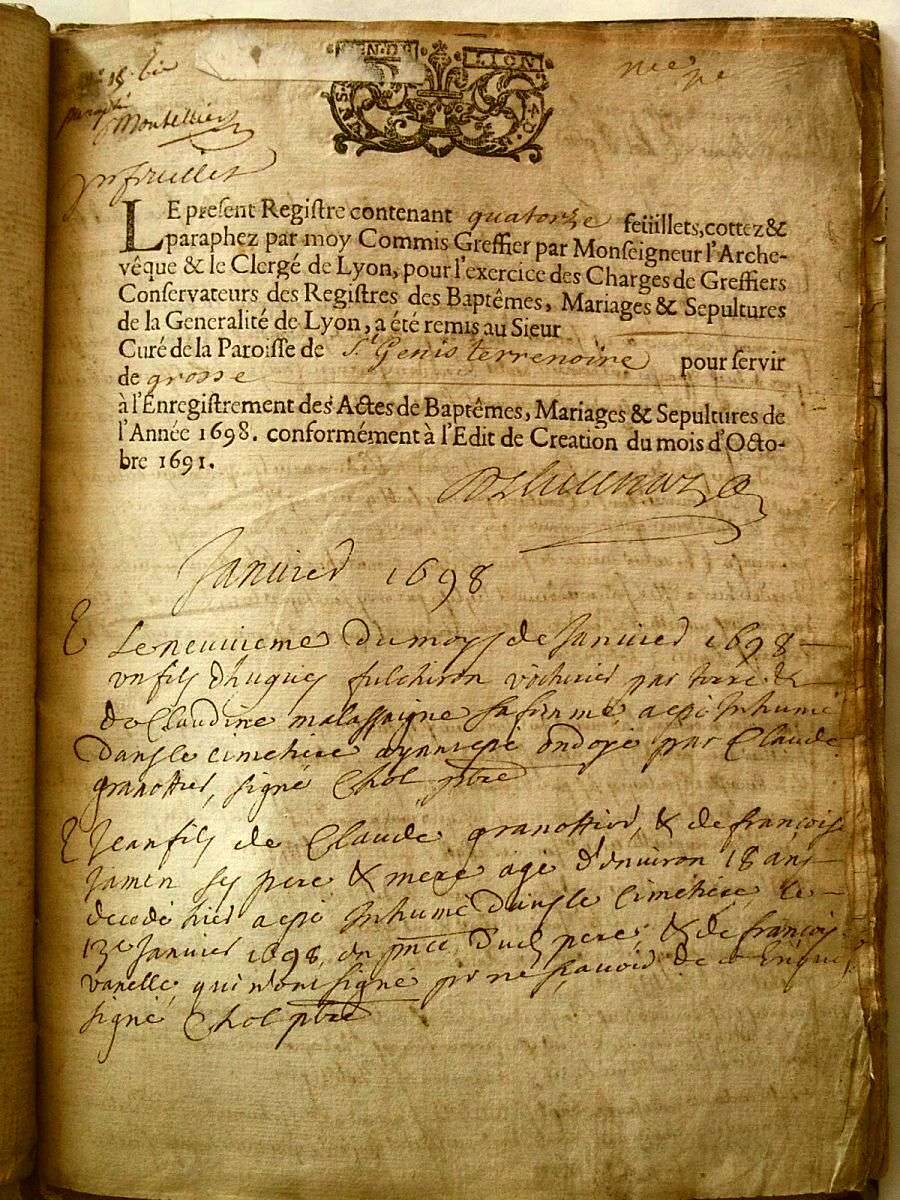 GEN. DE LION
15
paraphé
Montellier
pr feuillet
LE present Registre contenant quatorze feüillets, cottez &
paraphez par moy Commis Greffier par Monseigneur l'Arche-
vêque & le Clergé de Lyon, pour l'exercice des Charges de Greffiers
Conservateurs des Registres des Baptêmes, Mariages & Sepultures
de la Generalité de Lyon, a été remis au Sieur
Curé de la Paroisse de St Genis terrenoire pour servir
de grosse
à l'Enregistrement des Actes de Baptêmes, Mariages & Sepultures de
l'Année 1698. conformément à l'Edit de Creation du mois d'Octo-
bre 1691.
Janvier 1698
Le neuvieme du moys de Janvier 1698
un fils d'hugues fulchiron voiturier par terre &
de Claudine malassaigne sa femme a esté Inhumé
dans le cimetiere ayant esté ondoyé par Claude
granottier, signé Chol ptre
Jean fils de Claude granottier, & de françoise
Jamen ses pere & mere agé d'environ 18 ans
decedé hier a esté Inhumé dans le cimetiere, le
13e Janvier 1698, en pnce dud pere, & de françois
vanelle, qui n'ont signé pr ne sçavoir de ce Enquis
signé Chol ptre